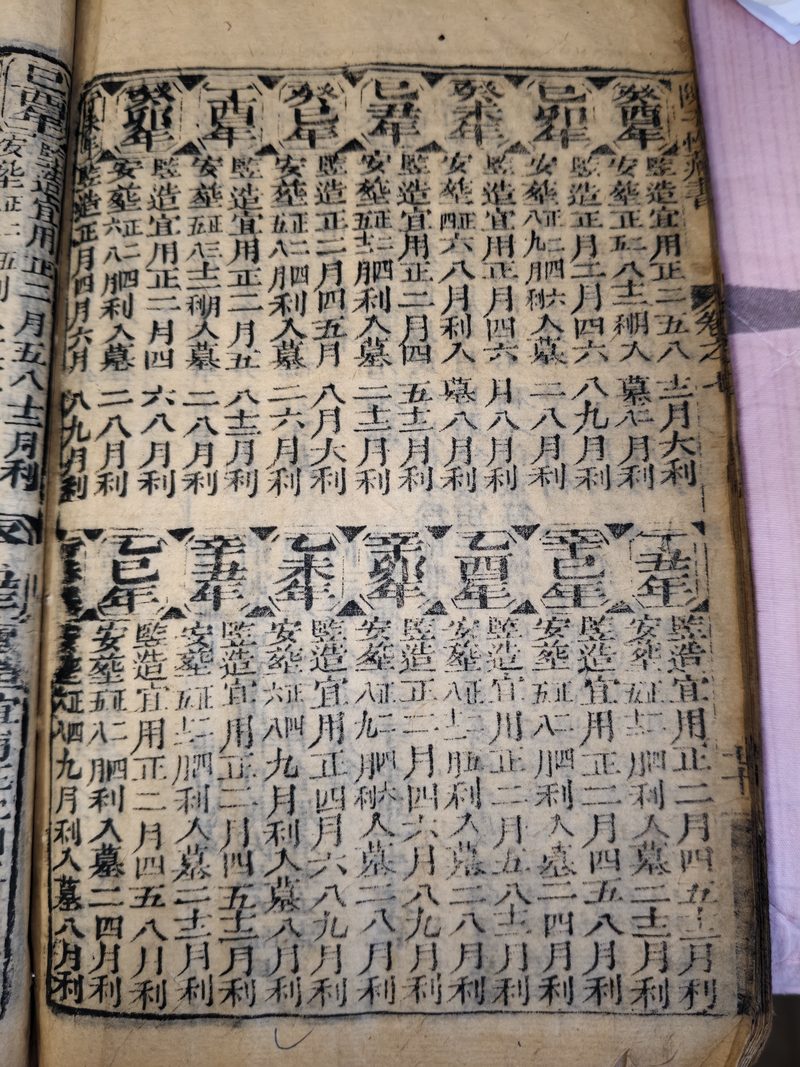 卷之七
癸酉年
竪造宜用正二五八十二月大利
安塟正五二八十二月利入墓八月利
己卯年
竪造正月二月四六八九月利
安塟正二四六八九月利入墓二八月利
癸未年
竪造宜用正月四六月八月利
安塟正四六八月利入墓八月利
己丑年
竪造宜用正二月四五十二月利
安塟正二四五十二月利入墓二十二月利
癸巳年
竪造正二月四五月八月大利
安塟正二四五八月利入墓二六月利
丁酉年
竪造宜用正二月五八十二月利
安塟正三五八十二月利入墓二八月利
癸卯年
竪造宜用正二月四六八月利
安塟正二四六八月利入墓二八月利
竪造正月四月六月八九月利
丁丑年
竪造宜用正二月四五十二月利
安塟正二四五十二月利入墓二十二月利
辛巳年
竪造宜用正二月四五八月利
安塟正二四五八月利入墓二四月利
乙酉年
竪造宜用正二月五八十二月利
安塟正二五八十二月利入墓二八月利
辛卯年
竪造正二月四六月八九月利
安塟正二四六八九月利入墓二八月利
乙未年
竪造宜用正四月六八九月利
安塟正四六八九月利入墓八月利
辛丑年
竪造宜用正二月四五十二月利
安塟正二四五十二月利入墓二十二月利
乙巳年
竪造宜用正二月四五八月利
安塟正二四五八月利入墓二四月利
安塟正四六八九月利入墓八月利
己酉年
竪造宜用正二月五八十二月利